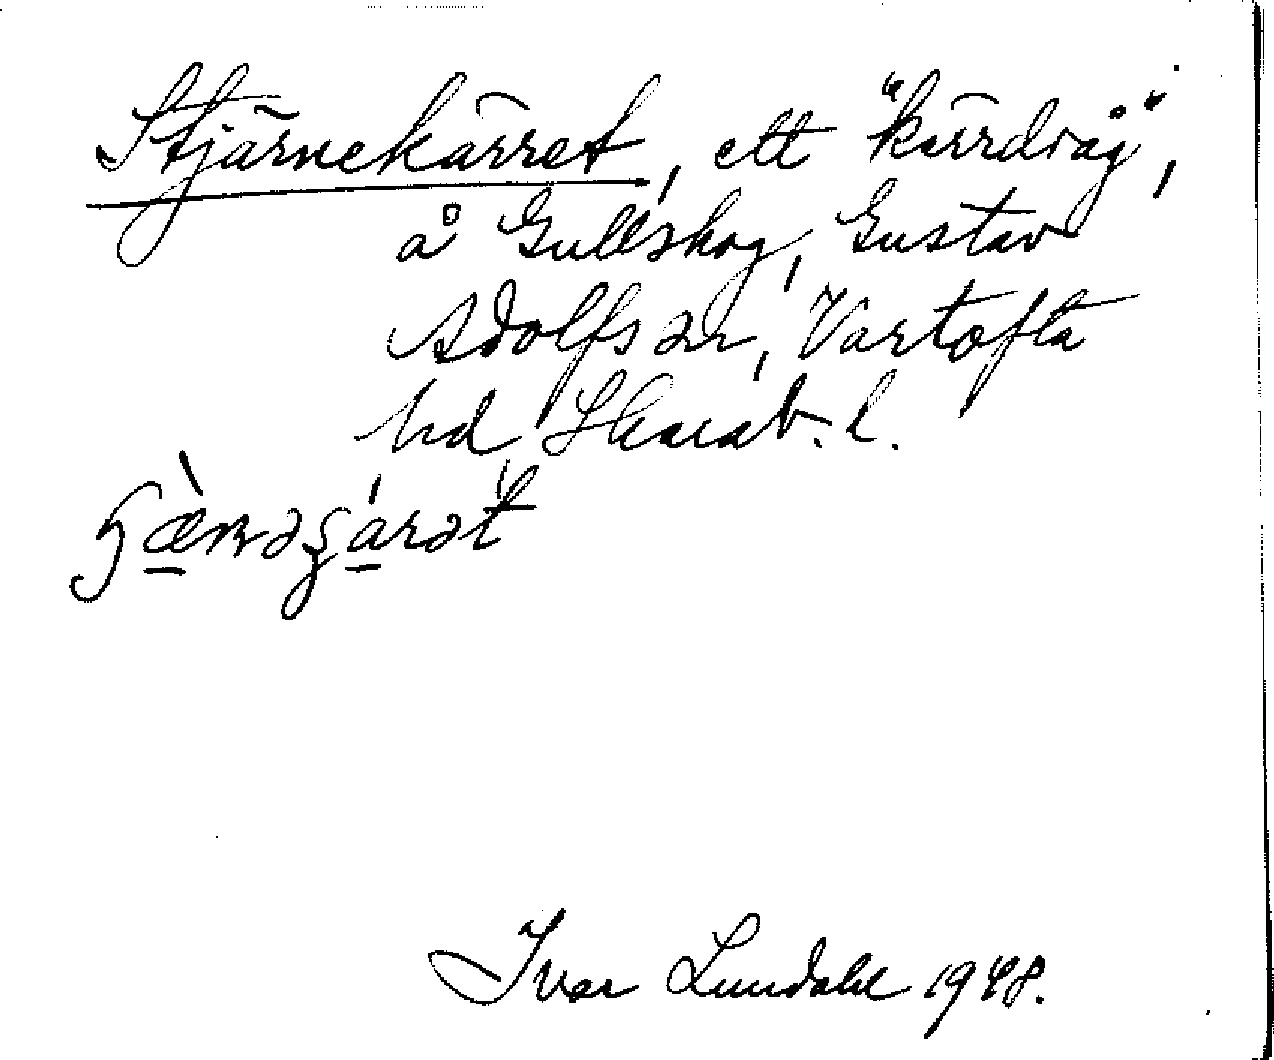 Stjärnekärret, ett "kärrdråg",
å Gullskog, Gustav
Adolfs sn, Vartofta
hd, Skarab. l.
Ivar Lundahl 1948.